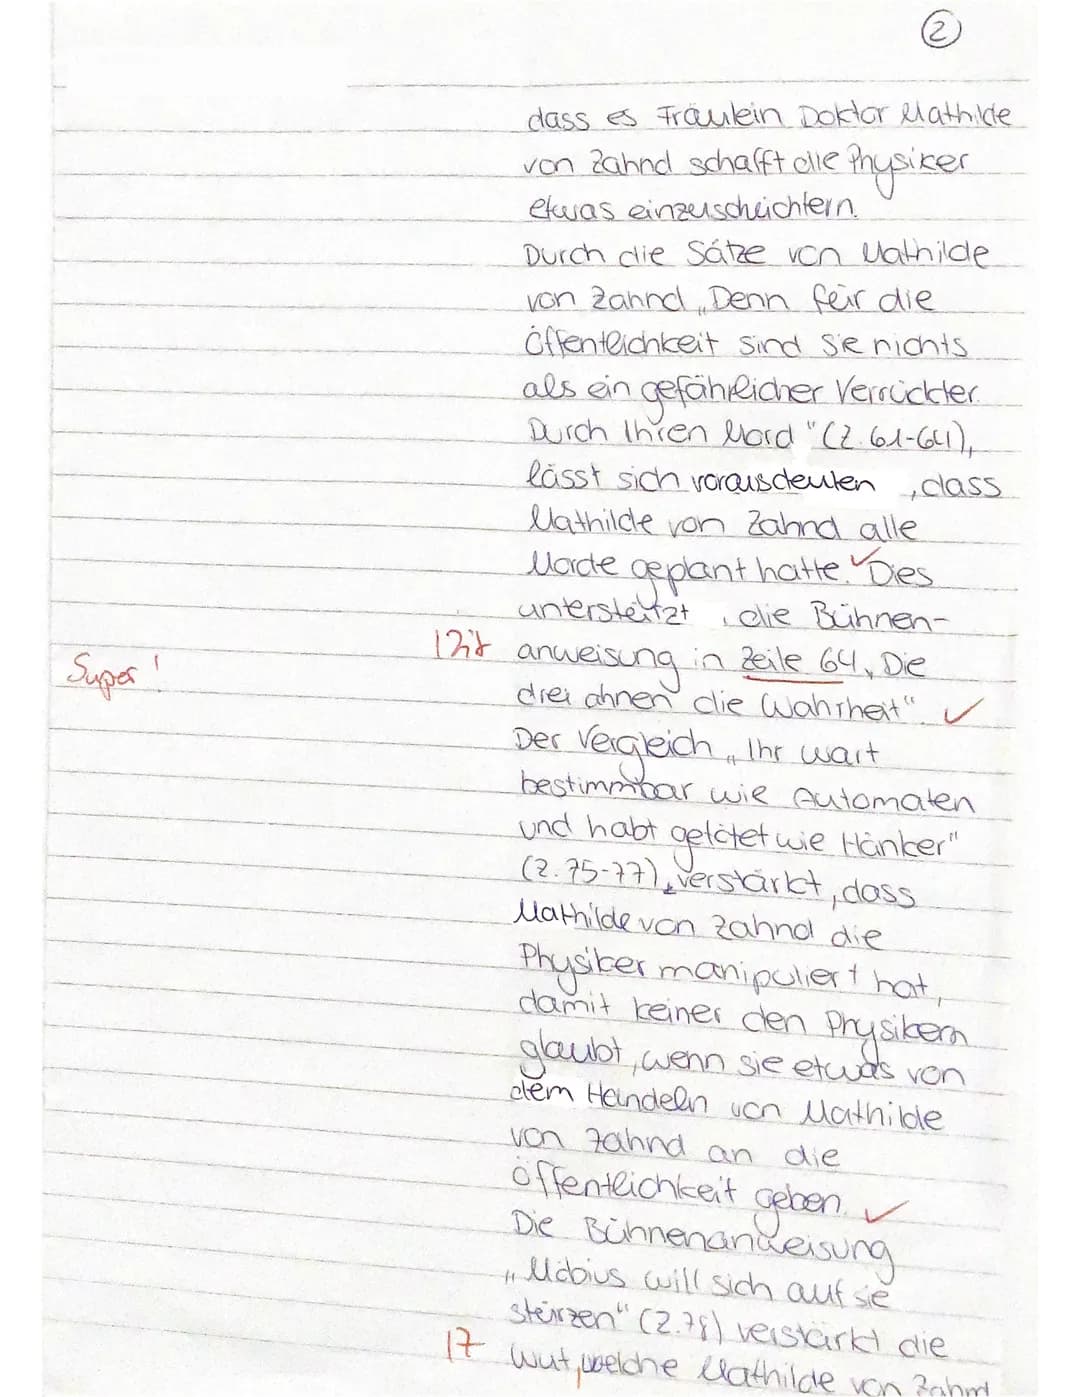 2
dass es Fräulein Doktor Mathilde
von Zahnd schafft die Physiker
etwas einzuschüchtern.
Durch die Sätze von Mathilde
von Zahnd „Denn für die
Öffentlichkeit sind Sie nichts
als ein gefährlicher Verrückter.
Durch Ihren Mord" (Z. 61-64),
lässt sich vorausdeuten, dass
Mathilde von Zahnd alle
Morde geplant hatte. ✓ Dies
unterstützt die Bühnen-
anweisung in Zeile 64 „Die
Super!
drei ahnen die Wahrheit". ✓
Der Vergleich „Ihr wart
bestimmbar wie Automaten
und habt getötet wie Hänker"
(Z. 75-77), verstärkt, dass
Mathilde von Zahnd die
Physiker manipuliert hat,
damit keiner den Physikern
glaubt, wenn sie etwas von
dem Handeln von Mathilde
von Zahnd an die
öffentlichkeit geben. ✓
Die Bühnenanweisung
„Möbius will sich auf sie
stürzen" (Z.78) verstärkt die
Wut, welche Mathilde von Zahnd